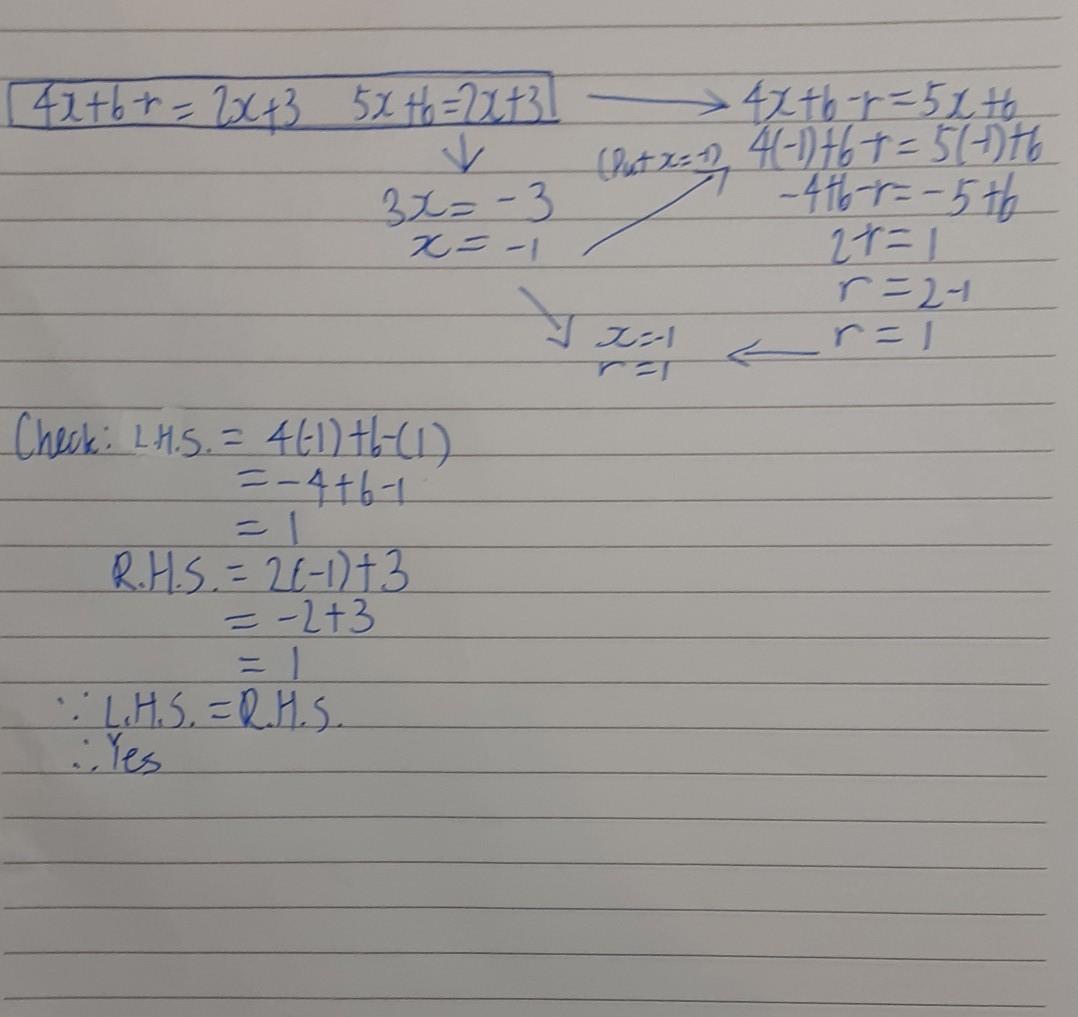 4x+6-r = 2x+3 5x+6=2x+3 → 4x+6-r=5x+6
↓ (Put x=-1) 4(-1)+6-r = 5(-1)+6
3x= -3 -4+6-r= -5+6
x= -1 2-r= 1
r = 2-1
x=-1 ← r = 1
r=1
Check: L.H.S. = 4(-1)+6-(1)
= -4+6-1
= 1
R.H.S. = 2(-1)+3
= -2+3
= 1
∵ L.H.S. = R.H.S.
∴ Yes